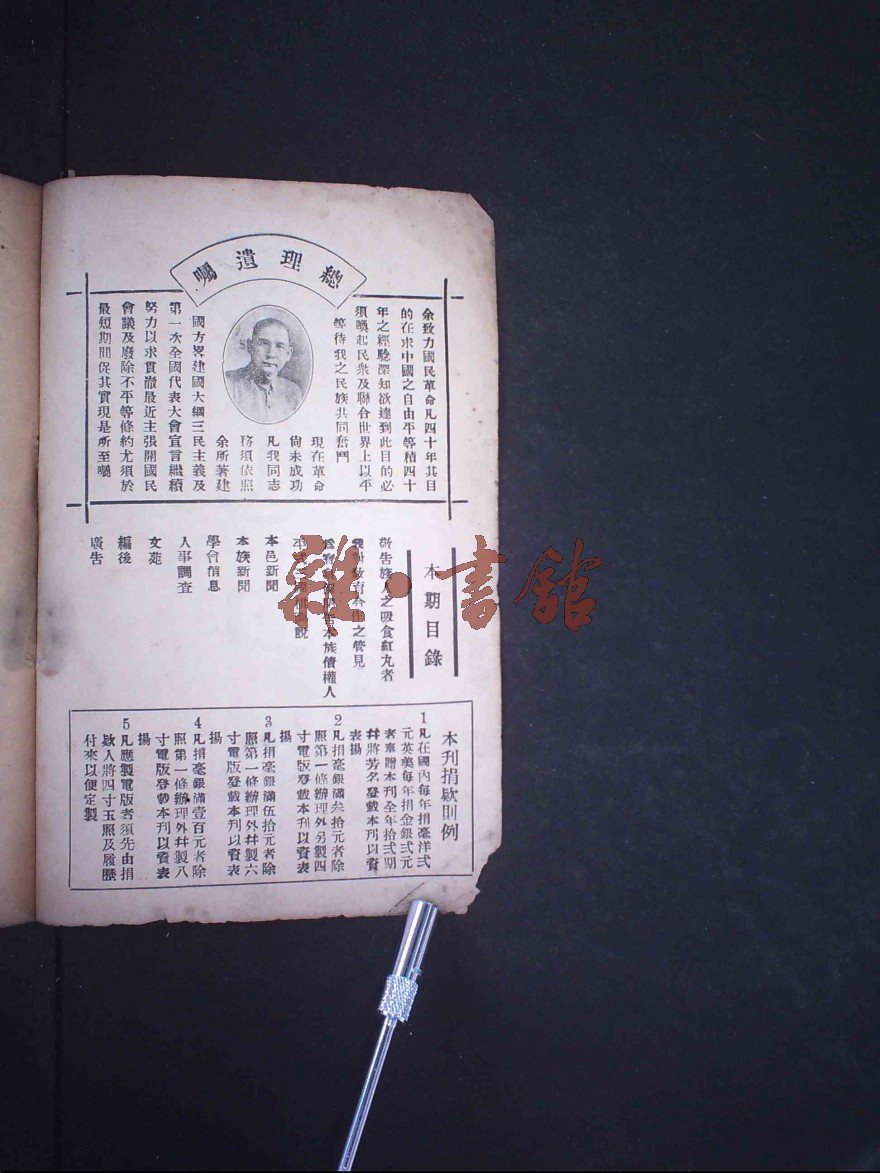 總理遺囑
余致力國民革命凡四十年其目
的在求中國之自由平等積四十
年之經驗深知欲達到此目的必
須喚起民衆及聯合世界上以平
等待我之民族共同奮鬥
現在革命
尙未成功
凡我同志
務須依照
余所著建
國方畧建國大綱三民主義及
第一次全國代表大會宣言繼續
努力以求貫澈最近主張開國民
會議及廢除不平等條約尤須於
最短期間促其實現是所至囑
本期目錄
敬告族人之吸食紅丸者
教育合作之管見
本族債權人
說
本邑新聞
本族新聞
學會信息
人事調查
文苑
編後
廣告
本刊捐欵則例
1凡在國內每年捐毫洋弍
元英美每年捐金銀弍元
者奉贈本刊全年拾弍期
幷將芳名登載本刊以資
表揚
2凡捐毫銀滿叁拾元者除
照第一條辦理外另製四
寸電版登載本刊以資表
揚
3凡捐毫銀滿伍拾元者除
照第一條辦理外幷製六
寸電版登載本刊以資表
揚
4凡捐毫銀滿壹百元者除
照第一條辦理外幷製八
寸電版登載本刊以資表
揚
5凡應製電版者須先由捐
欵人將四寸玉照及履歷
付來以便定製
雜·書館